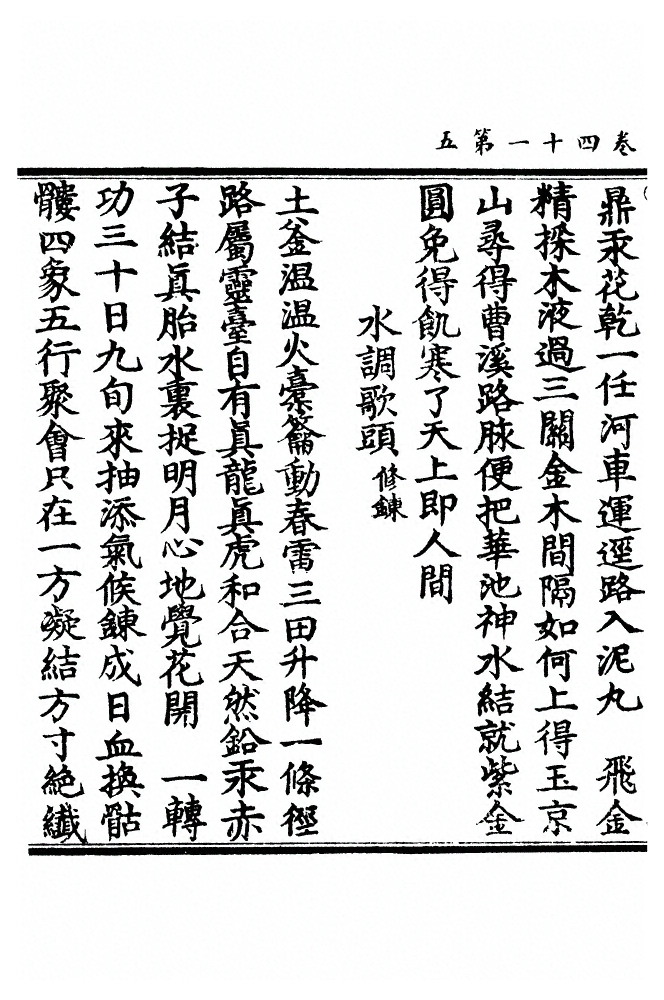 卷四十一第五
鼎汞花乾一任河車運逕路入泥丸　飛金
精採木液過三關金木間隔如何上得玉京
山尋得曹溪路脉便把華池神水結就紫金
圓免得飢寒了天上即人間
水調歌頭 修鍊
土釜温温火橐籥動春雷三田升降一條徑
路屬靈臺自有眞龍眞虎和合天然鉛汞赤
子結眞胎水裏捉明月心地覺花開　一轉
功三十日九旬來抽添氣候鍊成日血換骷
髏四象五行聚會只在一方凝結方寸絶纖